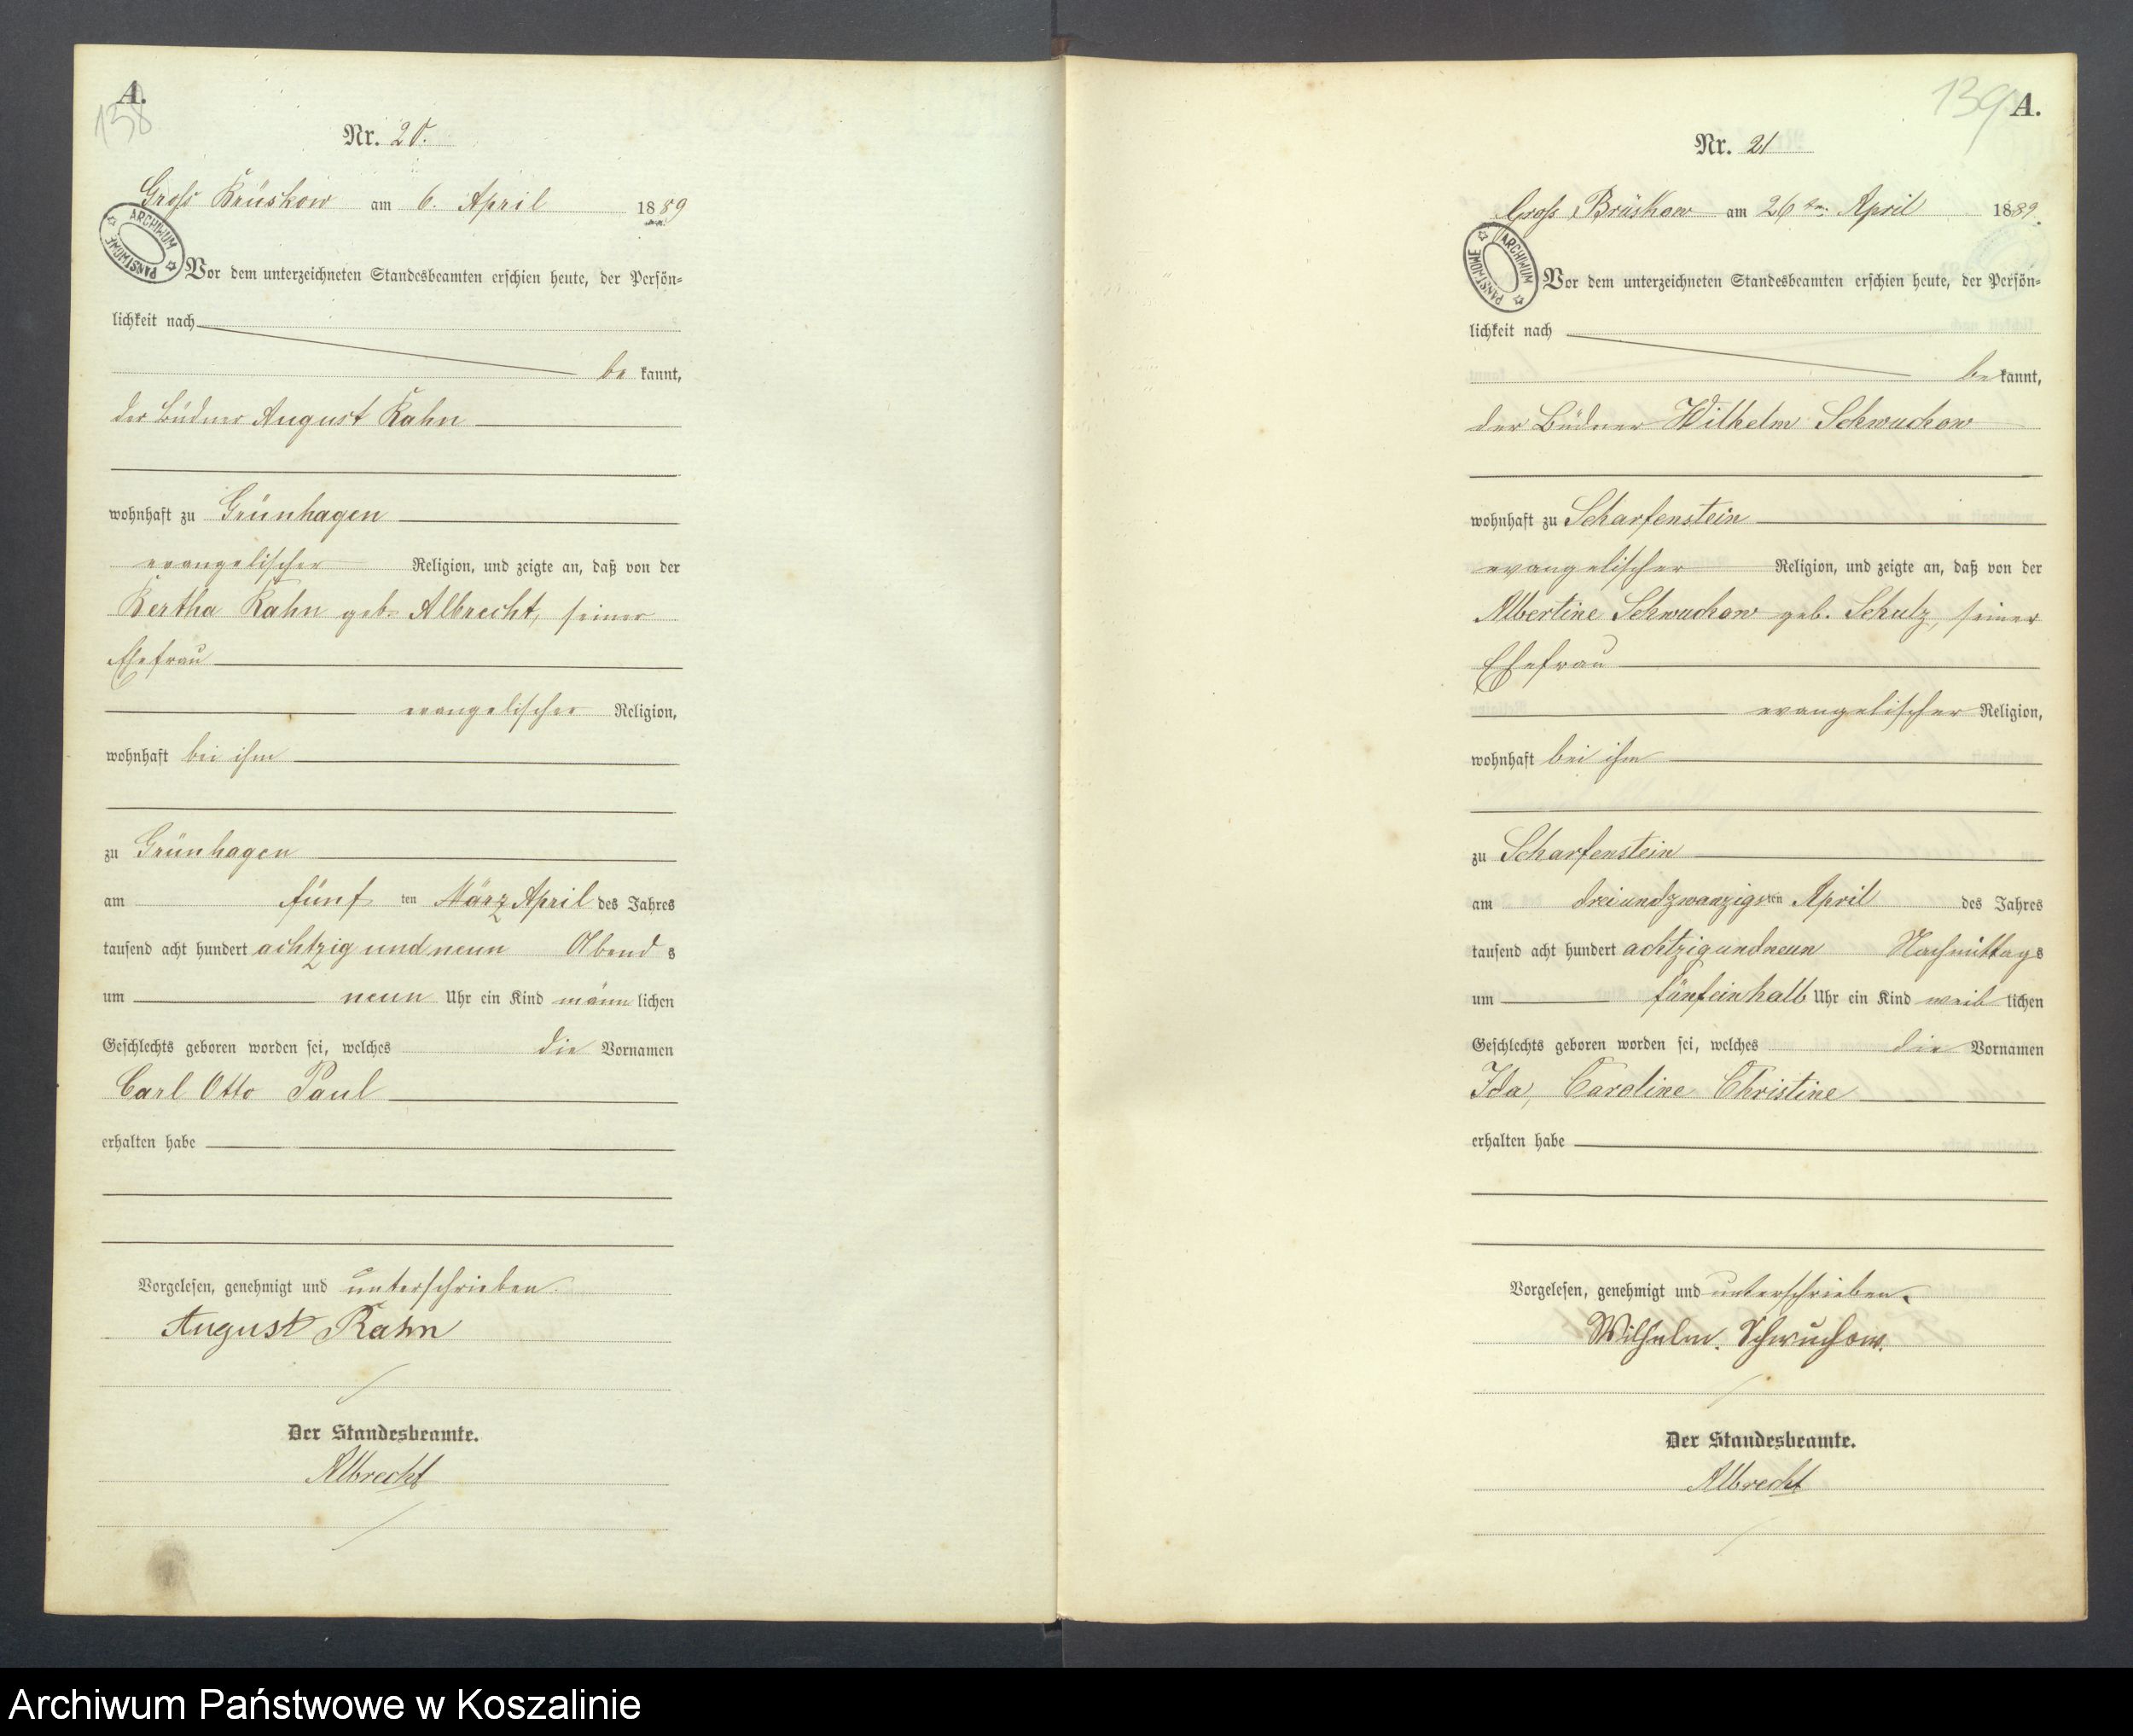 A.
138
Nr. 20.
Groß Brüskow am 6. April 1889
ARCHIWUM PAŃSTWOWE
Vor dem unterzeichneten Standesbeamten erschien heute, der Persön-
lichkeit nach
be kannt,
der Büdner August Rahn
wohnhaft zu Grünhagen
evangelischer Religion, und zeigte an, daß von der
Bertha Rahn geb. Albrecht, seiner
Ehefrau
evangelischer Religion,
wohnhaft bei ihm
zu Grünhagen
am fünf ten März April des Jahres
tausend acht hundert achtzig und neun Abend s
um neun Uhr ein Kind männ lichen
Geschlechts geboren worden sei, welches die Vornamen
Carl Otto Paul
erhalten habe
Vorgelesen, genehmigt und unterschrieben
August Rahn
Der Standesbeamte.
Albrecht
139 A.
Nr. 21
Groß Brüskow am 26 ten April 1889.
ARCHIWUM PAŃSTWOWE
Vor dem unterzeichneten Standesbeamten erschien heute, der Persön-
lichkeit nach
be kannt,
der Büdner Wilhelm Schwuchow
wohnhaft zu Scharfenstein
evangelischer Religion, und zeigte an, daß von der
Albertine Schwuchow geb. Schulz, seiner
Ehefrau
evangelischer Religion,
wohnhaft bei ihm
zu Scharfenstein
am dreiundzwanzigsten April des Jahres
tausend acht hundert achtzigundneun Nachmittags
um fünfeinhalb Uhr ein Kind weib lichen
Geschlechts geboren worden sei, welches die Vornamen
Ida, Caroline Christine
erhalten habe
Vorgelesen, genehmigt und unterschrieben.
Wilhelm. Schwuchow.
Der Standesbeamte.
Albrecht
Archiwum Państwowe w Koszalinie